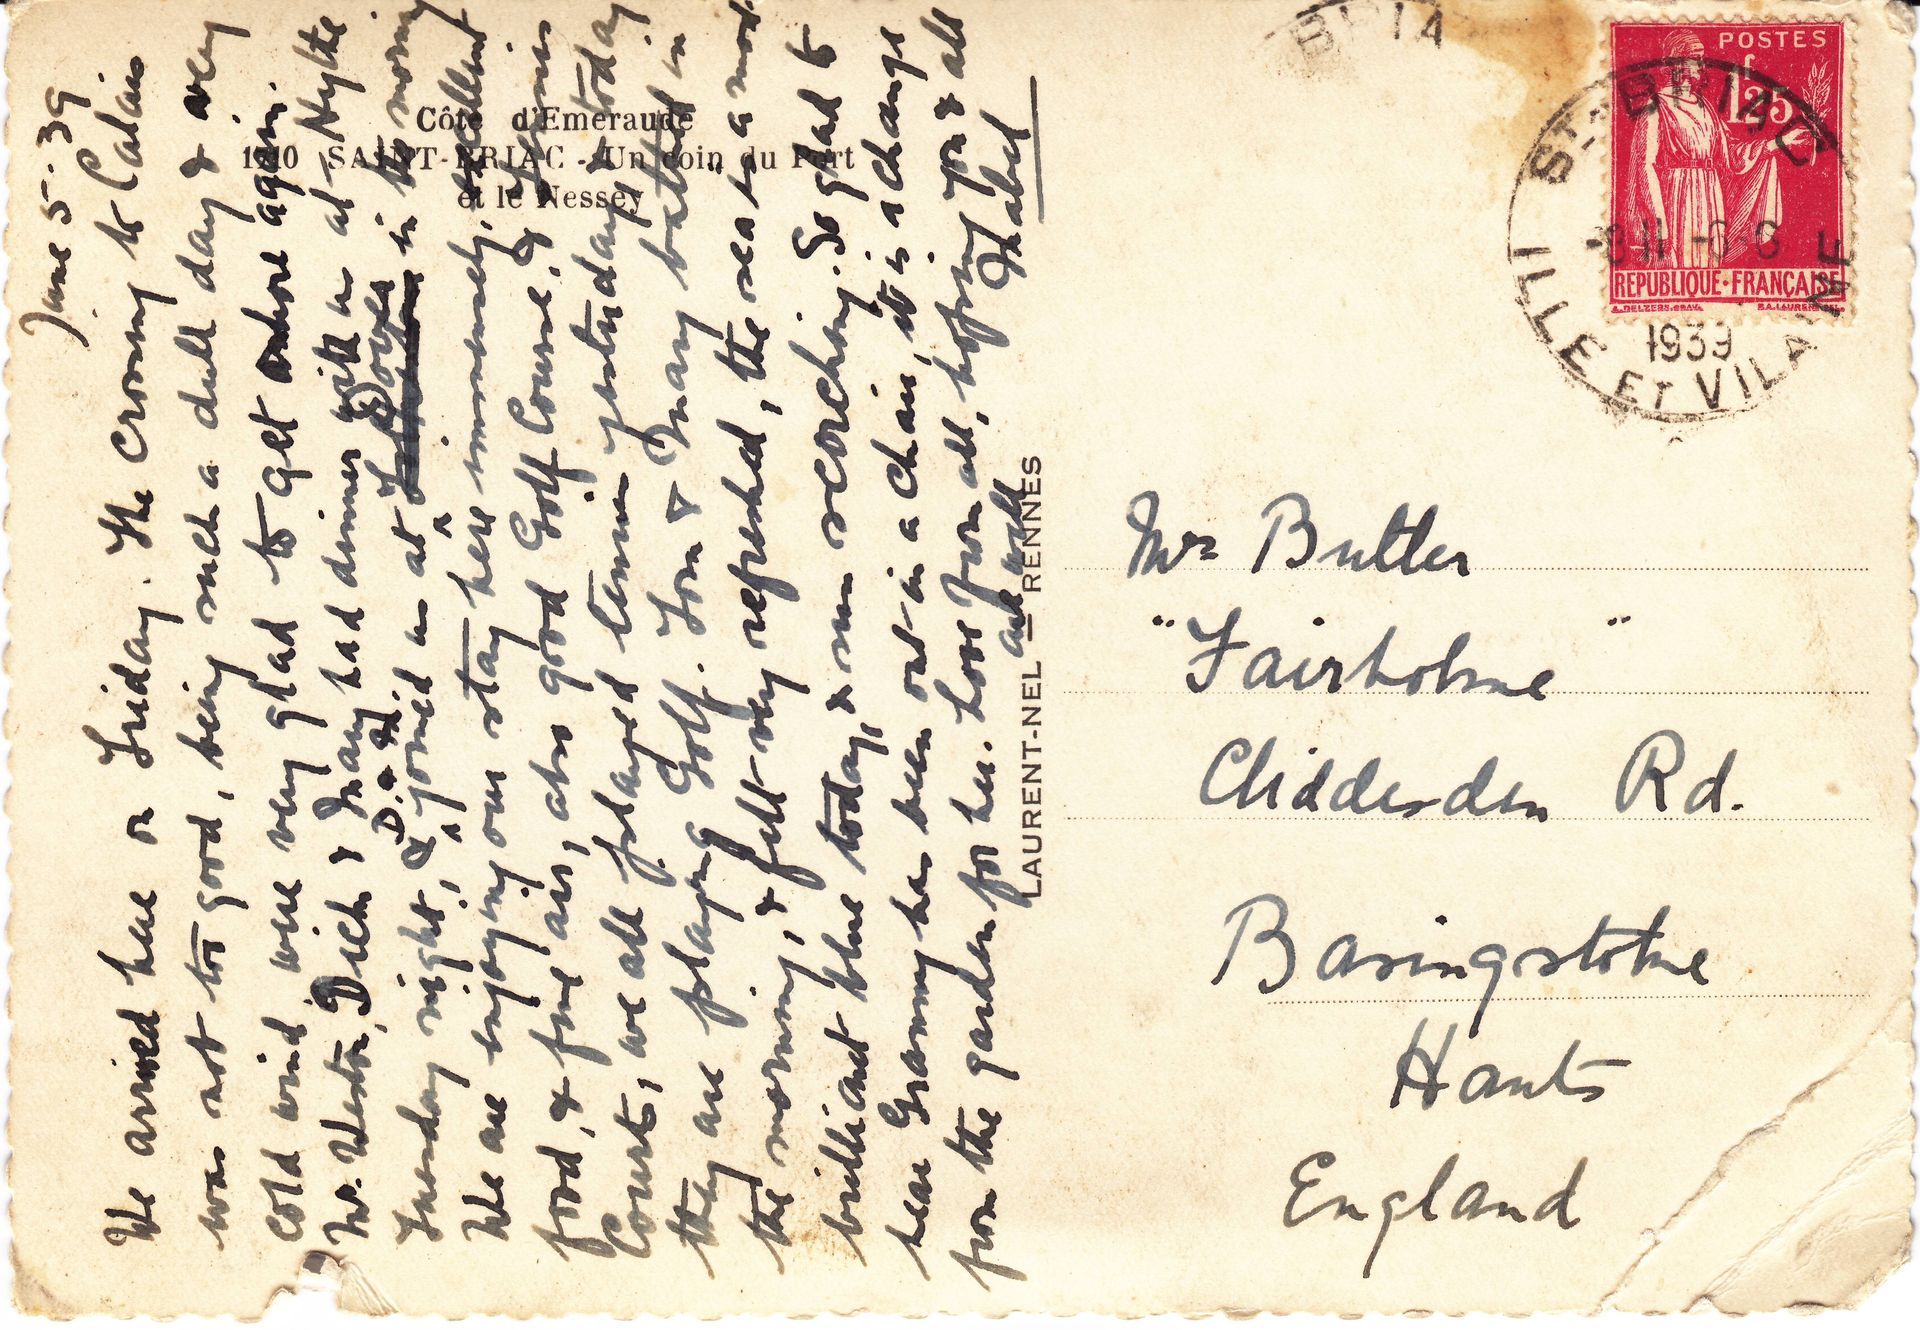 June 5. 39
We arrived here on Friday. The crossing to Calais
was not too good, being such a dull day & very
cold wind were very glad to get ashore again.
Mr. Weston, Dick & Mary had dinner with us at Hythe
Thursday night, & D. & M. joined us at Dover in the morning
We are enjoying our stay here immensely, excellent
food, & fine air, also good Golf Course, & Tennis
Courts, we all played tennis yesterday & today
they are playing Golf. Tom & Mary bathed in
the morning, & felt very refreshed, the sea is a most
brilliant blue today, & sun scorching. So glad to
hear Granny has been out in a chair, it is a change
from the garden for her. Love from all, hoping you & all
are well
Mabel
Côte d'Emeraude
SAINT-BRIAC - Un coin du Port
et le Nessey
LAURENT-NEL — RENNES
BRIA
POSTES
1f25
REPUBLIQUE·FRANÇAISE
ST-BRIAC
1939
ILLE ET VILAINE
Mrs Butler
"Fairholme"
Cliddesden Rd.
Basingstoke
Hants
England